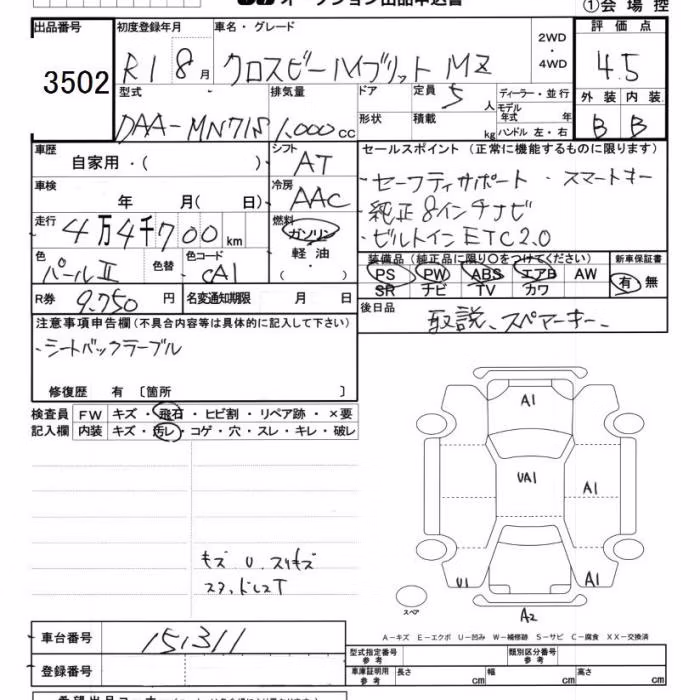 オークション出品申込書
①会場控
出品番号 初度登録年月 車名・グレード 評価点
3502 R1 8月 クロスビーハイブリット MZ 2WD・4WD 4.5
型式 排気量 ドア 定員 5人 ディーラー・並行 外装 内装
モデル年式 年
DAA-MN71S 1,000cc 形状 積載 kg ハンドル 左・右 B B
車歴 自家用・( ) シフト AT
セールスポイント (正常に機能するものに限ります)
車検 年 月( 日) 冷房 AAC
・セーフティサポート ・スマートキー
・純正8インチナビ
・ビルトインETC2.0
走行 4万4千700km 燃料 ガソリン・軽油・( )
色 パールⅡ 色替 色コード CA1
装備品(純正品に限り○をつけてください) 新車保証書
PS PW ABS エアB AW 有・無
SR ナビ TV カワ
R券 9,750円 名変通知期限 月 日
後日品 取説、スペアーキー、
注意事項申告欄(不具合内容等は具体的に記入して下さい)
・シートバックテーブル
修復歴 有 〔箇所 〕
検査員 FW キズ・飛石・ヒビ割・リペア跡・×要
記入欄 内装 キズ・汚レ・コゲ・穴・スレ・キレ・破レ
A1
UA1
A1
U1
A1
キズ U スリキズ
スペア
A2
A-キズ E-エクボ U-凹み W-補修跡 S-サビ C-腐食 XX-交換済
車台番号 151311
型式指定番号 参考 類別区分番号 参考
登録番号
車庫証明用 参考 長さ cm 幅 cm 高さ cm